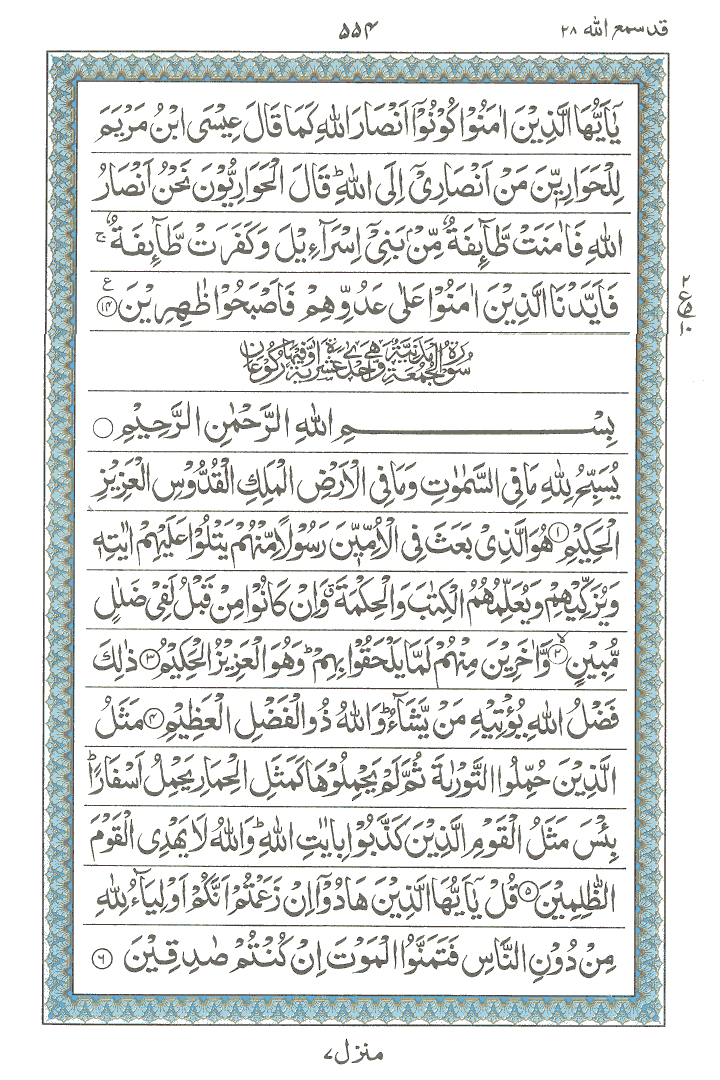 قد سمع الله ٢٨
٥٥٤
يٰۤاَيُّهَا الَّذِيْنَ اٰمَنُوْا كُوْنُوْۤا اَنْصَارَ اللهِ كَمَا قَالَ عِيْسَى ابْنُ مَرْيَمَ
لِلْحَوَارِيّٖنَ مَنْ اَنْصَارِيْۤ اِلَى اللهِ ؕ قَالَ الْحَوَارِيُّوْنَ نَحْنُ اَنْصَارُ
اللهِ فَاٰمَنَتْ طَّآئِفَةٌ مِّنْۢ بَنِيْۤ اِسْرَآءِيْلَ وَكَفَرَتْ طَّآئِفَةٌ ۚ
فَاَيَّدْنَا الَّذِيْنَ اٰمَنُوْا عَلٰى عَدُوِّهِمْ فَاَصْبَحُوْا ظٰهِرِيْنَ ﴿١٤﴾ ع
٢
ع
١٠
سُوْرَةُ الْجُمُعَةِ مَدَنِيَّةٌ وَّهِيَ اِحْدٰى عَشْرَةَ اٰيَةً وَّفِيْهَا رُكُوْعَانِ
بِسْمِ اللهِ الرَّحْمٰنِ الرَّحِيْمِ ○
يُسَبِّحُ لِلّٰهِ مَا فِي السَّمٰوٰتِ وَمَا فِي الْاَرْضِ الْمَلِكِ الْقُدُّوْسِ الْعَزِيْزِ
الْحَكِيْمِ ﴿١﴾ هُوَ الَّذِيْ بَعَثَ فِي الْاُمِّيّٖنَ رَسُوْلًا مِّنْهُمْ يَتْلُوْا عَلَيْهِمْ اٰيٰتِهٖ
وَيُزَكِّيْهِمْ وَيُعَلِّمُهُمُ الْكِتٰبَ وَالْحِكْمَةَ ۗ وَاِنْ كَانُوْا مِنْ قَبْلُ لَفِيْ ضَلٰلٍ
مُّبِيْنٍ ﴿٢﴾ ۙ وَّاٰخَرِيْنَ مِنْهُمْ لَمَّا يَلْحَقُوْا بِهِمْ ؕ وَهُوَ الْعَزِيْزُ الْحَكِيْمُ ﴿٣﴾ ذٰلِكَ
فَضْلُ اللهِ يُؤْتِيْهِ مَنْ يَّشَآءُ ؕ وَاللهُ ذُو الْفَضْلِ الْعَظِيْمِ ﴿٤﴾ مَثَلُ
الَّذِيْنَ حُمِّلُوا التَّوْرٰىةَ ثُمَّ لَمْ يَحْمِلُوْهَا كَمَثَلِ الْحِمَارِ يَحْمِلُ اَسْفَارًا ؕ
بِئْسَ مَثَلُ الْقَوْمِ الَّذِيْنَ كَذَّبُوْا بِاٰيٰتِ اللهِ ؕ وَاللهُ لَا يَهْدِي الْقَوْمَ
الظّٰلِمِيْنَ ﴿٥﴾ قُلْ يٰۤاَيُّهَا الَّذِيْنَ هَادُوْۤا اِنْ زَعَمْتُمْ اَنَّكُمْ اَوْلِيَآءُ لِلّٰهِ
مِنْ دُوْنِ النَّاسِ فَتَمَنَّوُا الْمَوْتَ اِنْ كُنْتُمْ صٰدِقِيْنَ ﴿٦﴾
منزل ٧